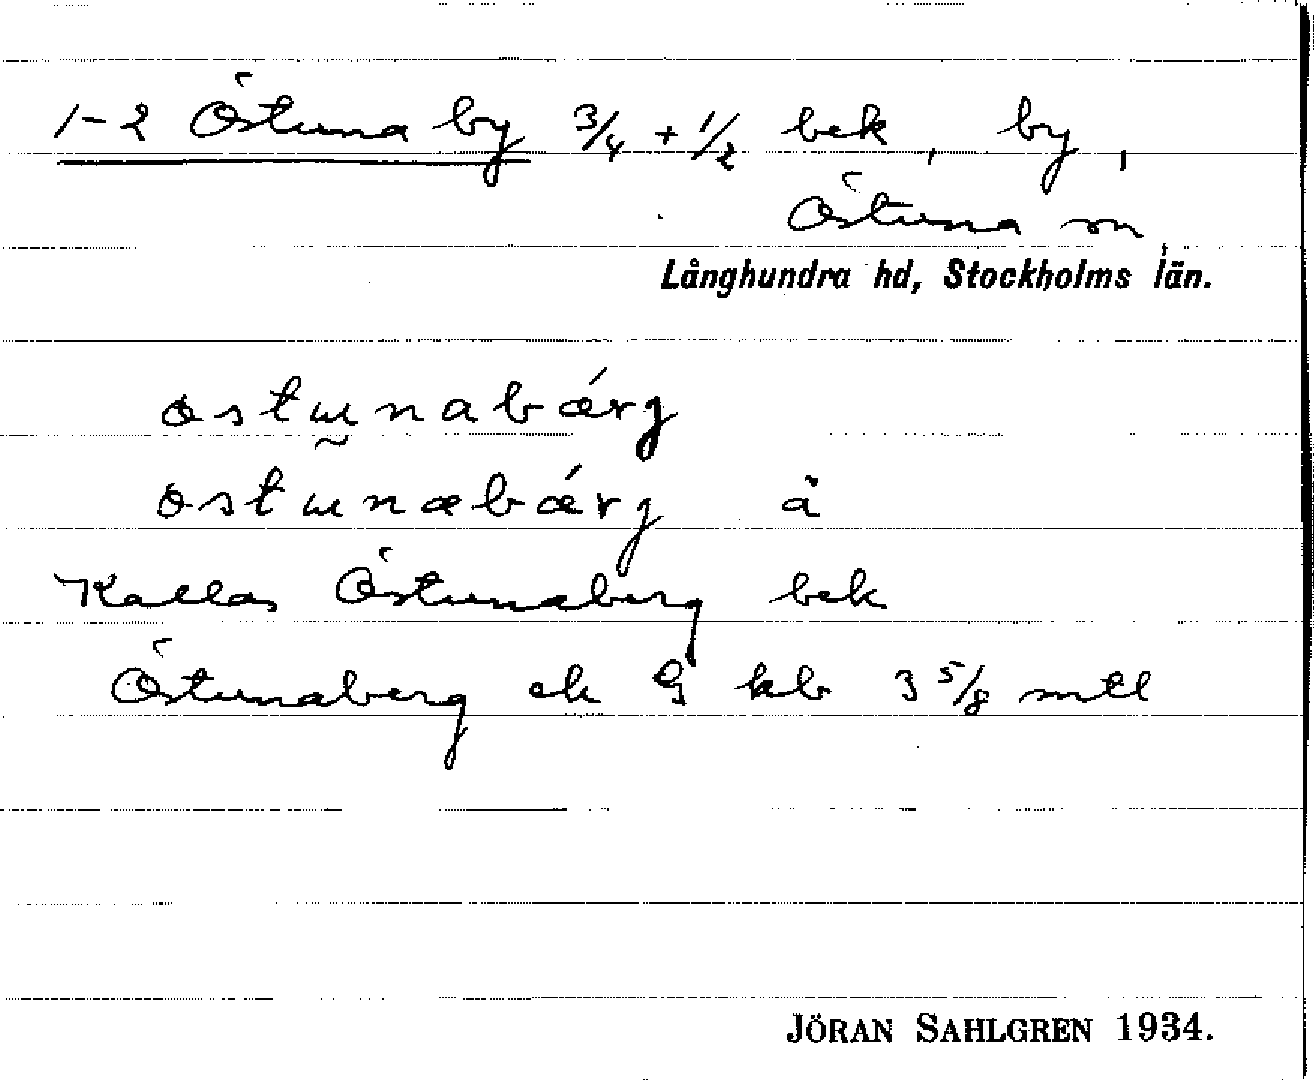 1-2 Östuna by 3/4 + 1/2 bek, by,
Östuna sn
Långhundra hd, Stockholms län.
østɯnabǽrg
østɯnæbǽrg å
Kallas Östunaberg bek
Östunaberg ek G kb 3 5/8 mtl
JÖRAN SAHLGREN 1934.